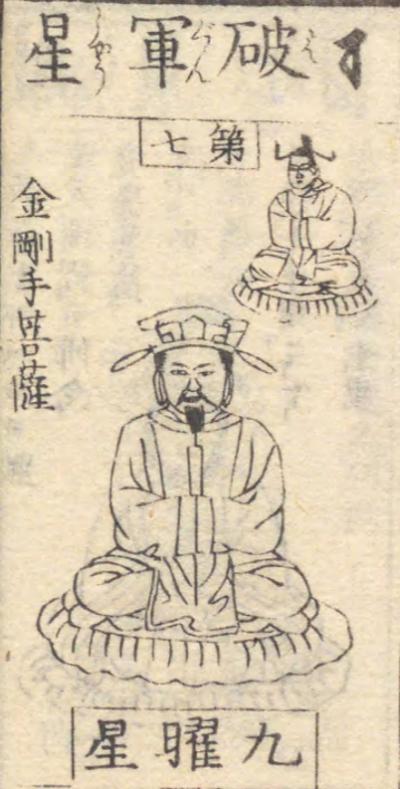 破軍星
はぐんしやう
第七
金剛手菩薩
九曜星